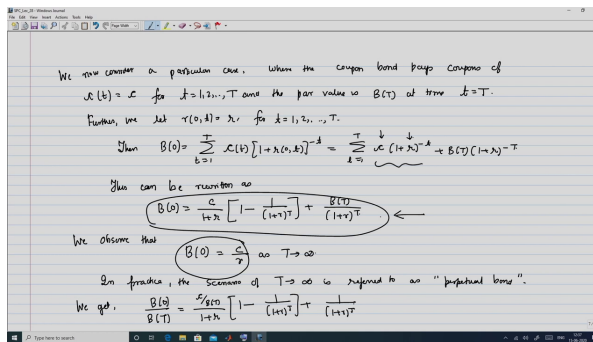 SPC_Lec_05 - Windows Journal
File Edit View Insert Actions Tools Help
Page Width
We now consider a particular case, where the coupon bond pays coupons of
c(t) = c for t=1,2,..,T and the par value is B(T) at time t=T.
Further, we let r(0,t) = r, for t=1,2,...,T.
Then B(0) = T∑t=1 c(t) [1+r(0,t)]^-t = T∑t=1 c (1+r)^-t + B(T) (1+r)^-T.
This can be rewritten as
B(0) = c/1+r [1 - 1/(1+r)^T] + B(T)/(1+r)^T ←
We observe that
B(0) = c/r as T→∞.
In practice, the scenario of T→∞ is referred to as "perpetual bond".
We get, B(0)/B(T) = c/B(T)/1+r [1 - 1/(1+r)^T] + 1/(1+r)^T
Type here to search
ENG
12:07
15-06-2020